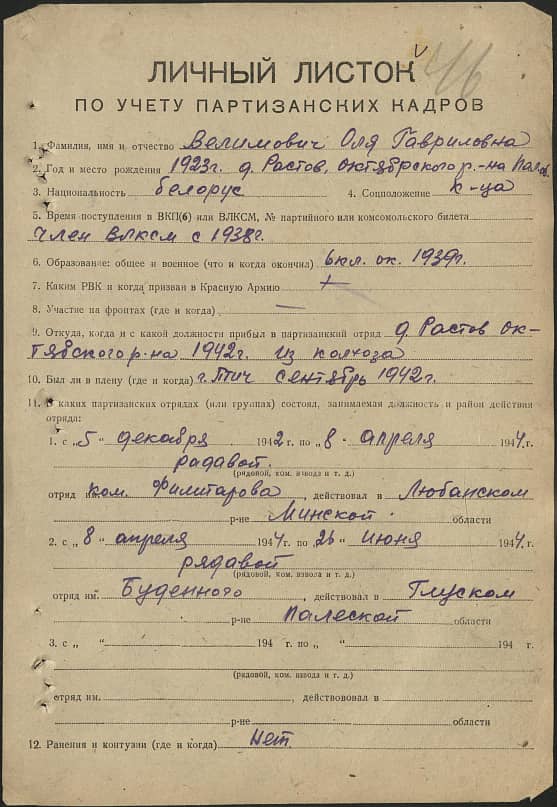 46
ЛИЧНЫЙ ЛИСТОК
ПО УЧЕТУ ПАРТИЗАНСКИХ КАДРОВ
1. Фамилия, имя и отчество Велимович Оля Гавриловна
2. Год и место рождения 1923г. д. Растов, октябрского р.-на Палес.
3. Национальность белорус 4. Соцположение к-ца
5. Время поступления в ВКП(б) или ВЛКСМ, № партийного или комсомольского билета
член ВЛКСМ с 1938г.
6. Образование: общее и военное (что и когда окончил) 6кл. ок. 1939г.
7. Каким РВК и когда призван в Красную Армию +
8. Участие на фронтах (где и когда) —
9. Откуда, когда и с какой должности прибыл в партизанкий отряд д. Растов ок-
тябвского р-на 1942г. из колхоза
10. Был ли в плену (где и когда) г. Птич сентябрь 1942г.
11. В каких партизанских отрядах (или группах) состоял, занимаемая должность и район действия
отряда:
1. с „5" декабря 1942 г. по „8 - апреля 1944 г.
радавой.
(рядовой, ком. взвода и т. д.)
отряд ком. , действовал в Любанском
р-не Минской. области
2. с „8" апреля 1944. г. по „26" июня 1944 г.
рядавой
(рядовой, ком. взвола и т. д.)
отряд им. Буденного , действовал в Глуском
р-не Палеской области
3. с „ “ 194 г. по „ “ 194 г.
(рядовой, ком. взвода и т. д.)
отряд им. , действововал в
р-не области
12. Ранения и контузии (где и когда) Нет